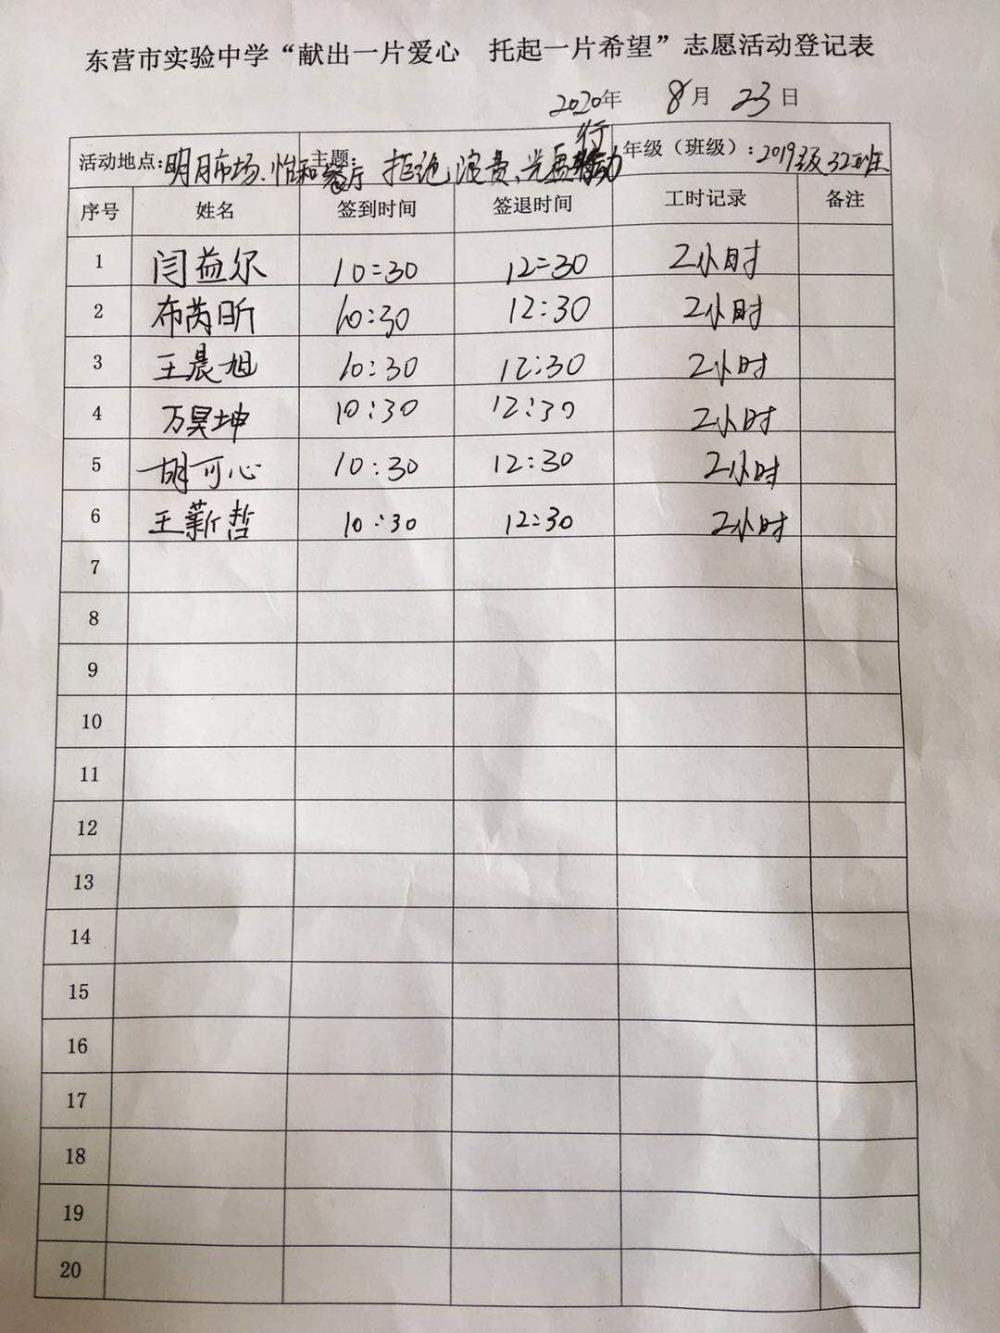 东营市实验中学“献出一片爱心 托起一片希望”志愿活动登记表
2020年 8月 23日
活动地点:明月市场、怡和餐厅 主题: 拒绝浪费、光盘行动 年级（班级）:2019级32班
序号 姓名 签到时间 签退时间 工时记录 备注
1 闫益尔 10:30 12:30 2小时
2 布芮昕 10:30 12:30 2小时
3 王晨旭 10:30 12:30 2小时
4 万昊坤 10:30 12:30 2小时
5 胡可心 10:30 12:30 2小时
6 王薪哲 10:30 12:30 2小时
7
8
9
10
11
12
13
14
15
16
17
18
19
20